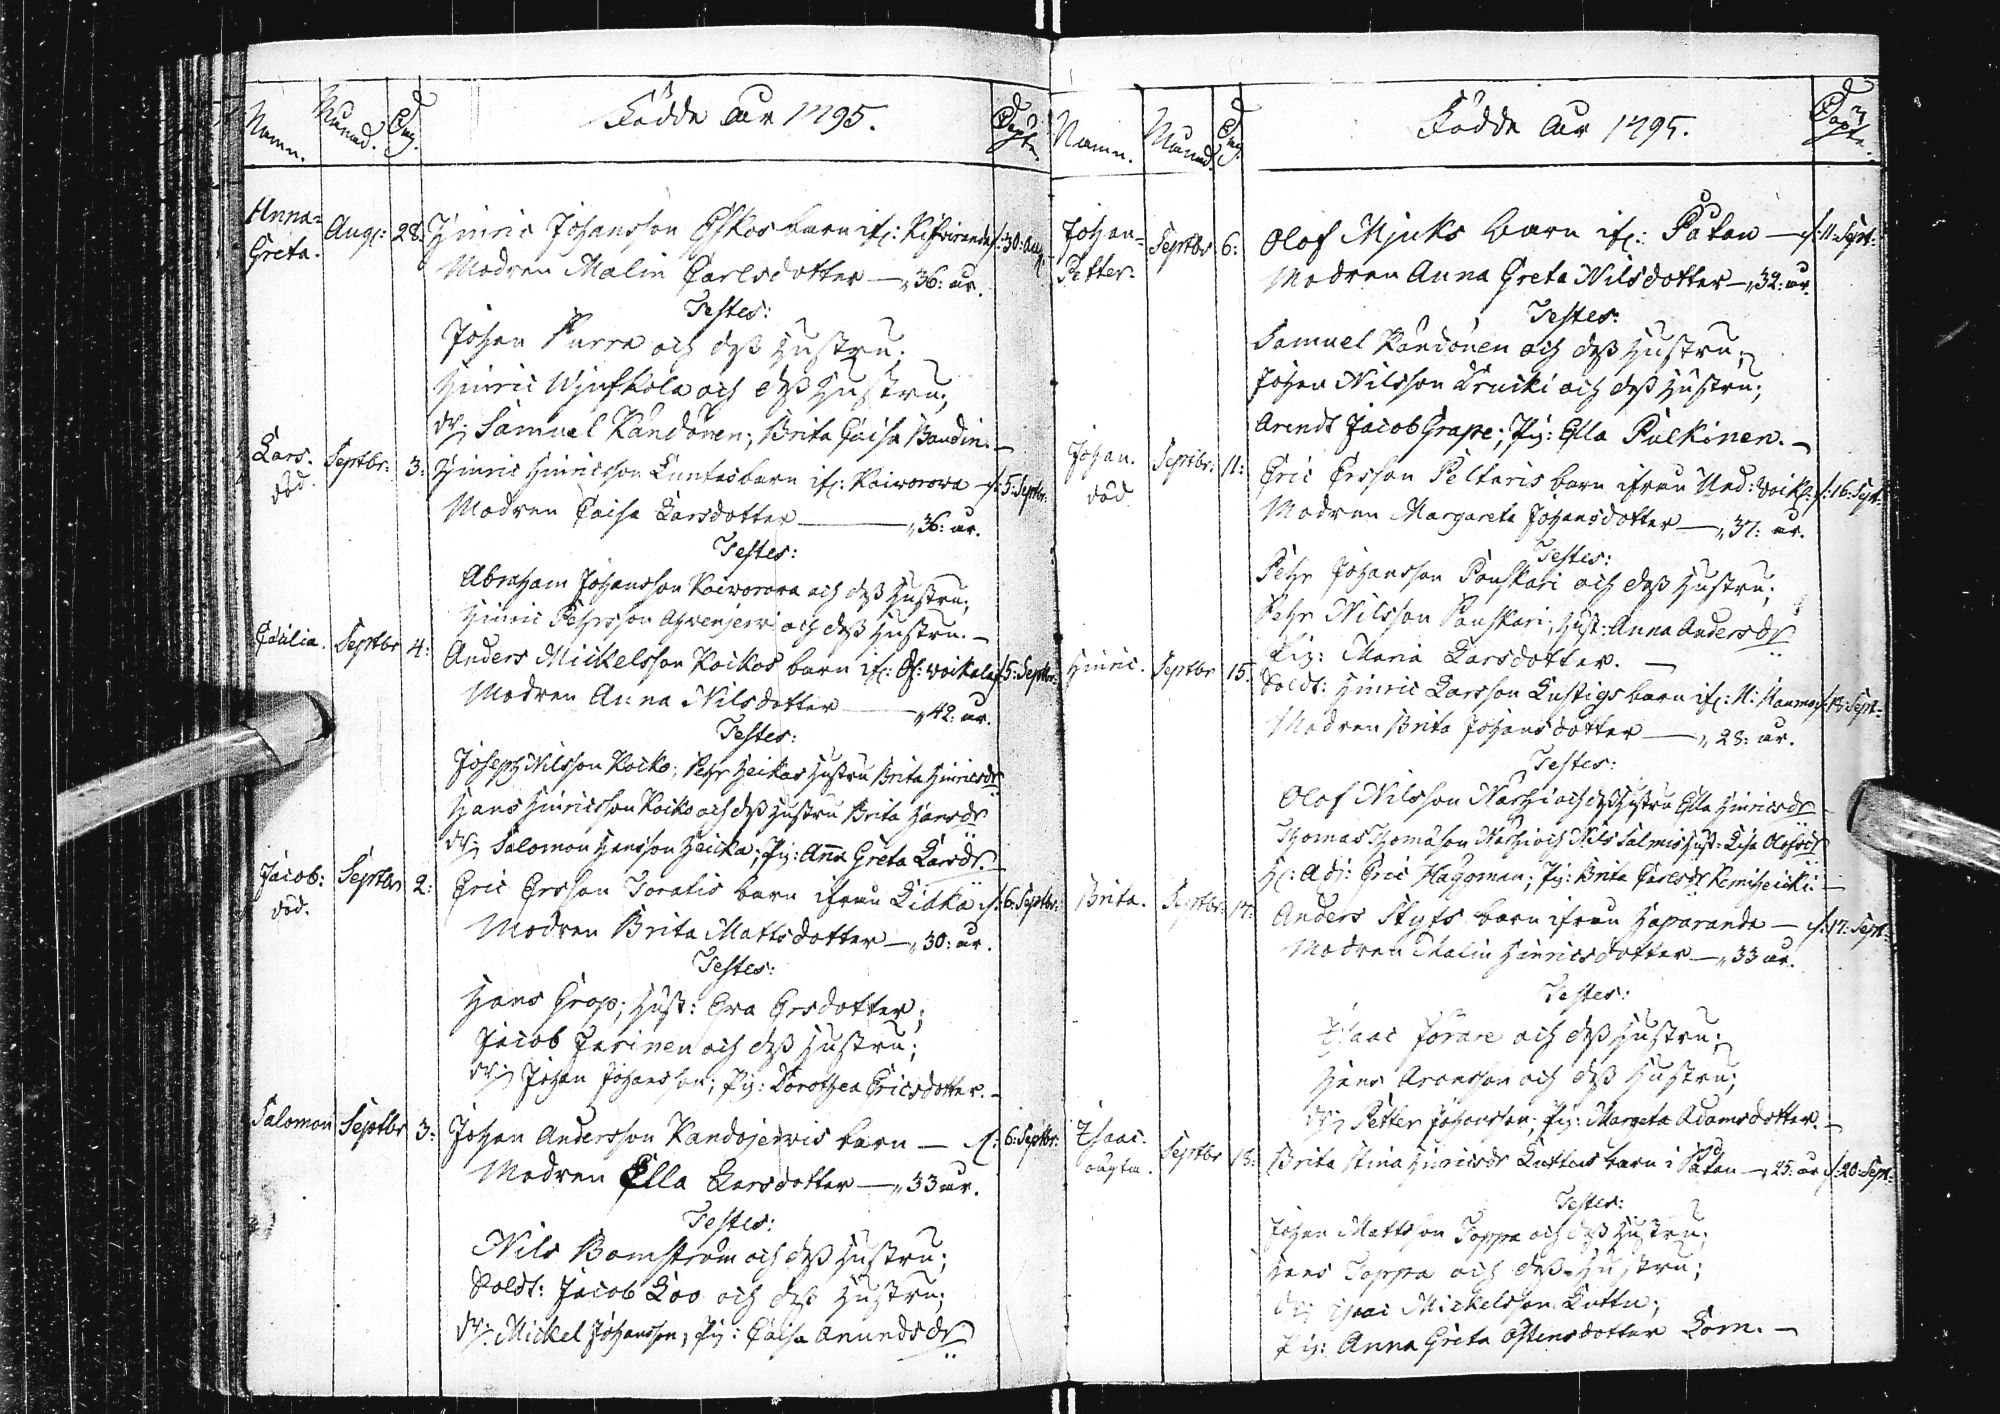 Namn. Månad. Dag. Födde Åar 1795. Döpte.
Anna- Aug: 28: Hinric Johansson Eskos barn if: :30: Aug:
Greta. Modren Malin Carlsdotter — „36: år.
Testes:
Johan Purra och deß Hustru;
Hinric och deß Hustru;
dr: Samuel Kandonen; Brita Caisa Baudin. —
Lars. Septbr: 3: Hinric Hinricsson Luntas barn if: Koiworova — :5: Septbr:
död. Modren Caisa Larsdotter — „36: år.
Testes:
Abraham Johansson Koiworova och deß Hustru;
Hinric Pehrsson och deß Hustru. —
Cecilia. Septbr 4: Anders Mickelsson Koikos barn if: Öf: Woikala :5: Septbr:
Modren Anna Nilsdotter — „42: år.
Testes:
Joseph Nilsson Koiko; Pehr Heikas Hustru Brita Hinricsdr
Hans Hinricsson Koiko och deß Hustru Brita Hansdr
dr: Salomon Hansson Heicka; Pig: Anna Greta Larsdr. —
Jacob: Septbr 2: Eric Ersson Toratis barn ifrån :6: Septbr:
död. Modren Brita Mattsdotter — „30: år.
Testes:
Hans Grop; Hust: Eva Ersdotter;
Jacob Jarinen och deß Hustru;
dr: Johan Johansson; Pig: Dorothea Ericsdotter. —
Salomon Septbr 3: Johan Andersson Kandojerwis barn — :6: Septbr:
Modren Ella Larsdotter — „33 år.
Testes:
Nils Bomström och deß Hustru;
Soldt: Jacob Loo och deß Hustru;
dr: Mickel Johansson; Pig: Caisa Anundsdr
Namn. Månad. Dag. Födde Åar 1795. Döpte.
Johan- Septbr 6: Olof Mjuks barn if: Påtan — :11: Sept:
Petter. Modren Anna Greta Nilsdotter — „32: år.
Testes:
Samuel Kandonen och deß Hustru;
Johan Nilsson Krucki och deß Hustru;
Arendt Jacob Grape; Pig: Ella Pulkinen. —
Johan. Septbr: 11: Eric Ersson Peltaris barn ifrån Ned: Woik: :16: Sept:
död Modren Margareta Johansdotter — „37: år.
Testes:
Pehr Johansson Pouskari och deß Hustru;
Pehr Nilsson Pouskari; Hust: Anna Andersdr
Pig: Maria Larsdotter. —
Hinric. Septbr 15: Soldt: Hinric Larsson Lustigs barn if: N: :18: Sept:
Modren Brita Johansdotter — „28: år.
Testes:
Olof Nilsson Narhi och deß Hustru Ella Hinricsdr
Thomas Thomasson Narhi och Nils Salmis Hust: Lisa Olofsdr
H: Adj: Eric Hagoman; Pig: Brita Carlsdr Kemiheicki —
Brita. Septbr: 17: Anders Styfs barn ifrån Haparanda — :17: Sept:
Modren Malin Hinricsdotter — „33 år.
Testes:
Isaac Jorare och deß Hustru;
Hans Aronsson och deß Hustru;
dr: Petter Johansson; Pig: Margeta Adamsdotter. —
Isaac. Septbr 18: Brita Stina Hinricsdr Luttus barn i Påtan — „25: år :20: Sept:
oägta. Testes:
Johan Mattsson Toppa och deß Hustru;
Hans Toppa och deß Hustru;
dr: Isaac Mickelsson Luttu;
Pig: Anna Greta Östensdotter Lom. —